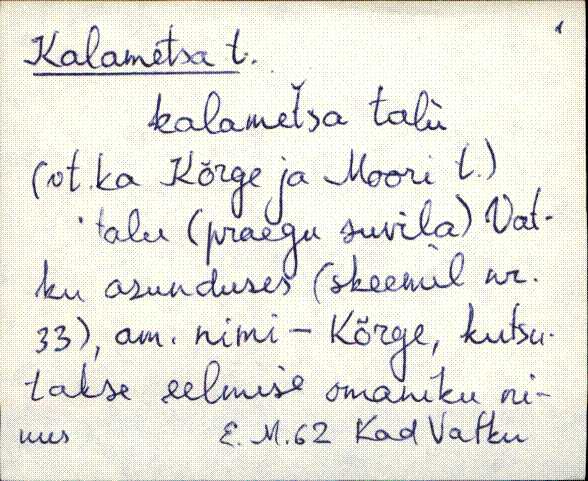 1
Kalametsa t.
kalamet̆sa talù
(vt. ka Kõrge ja Moori t.)
talu (praegu suvila) Vat-
ku asunduses (skeemil nr.
33), am. nimi – Kõrge, kutsu-
takse eelmise omaniku ni-
mes E. M. 62 Kad Vatku